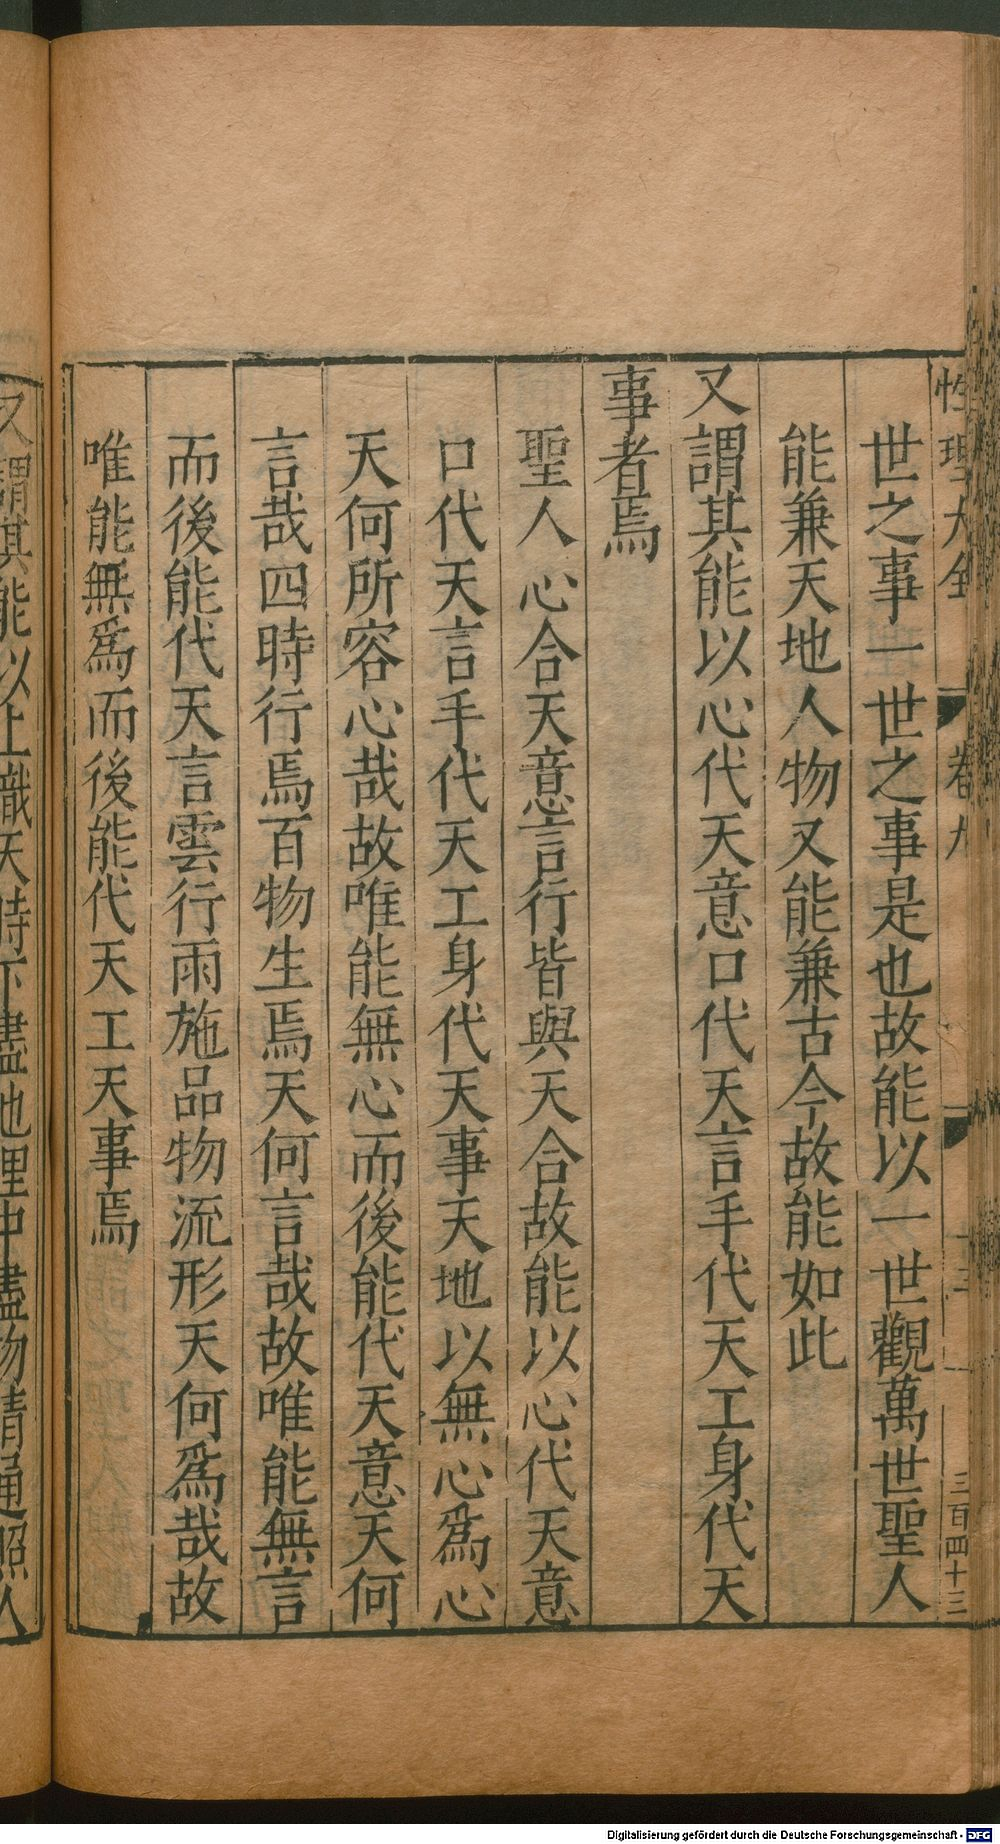 性理大全 卷九 三百四十三
世之事一世之事是也故能以一世觀萬世聖人
能兼天地人物又能兼古今故能如此
又謂其能以心代天意口代天言手代天工身代天
事者焉
聖人心合天意言行皆與天合故能以心代天意
口代天言手代天工身代天事天地以無心爲心
天何所容心哉故唯能無心而後能代天意天何
言哉四時行焉百物生焉天何言哉故唯能無言
而後能代天言雲行雨施品物流形天何爲哉故
唯能無爲而後能代天工天事焉
又謂其能以上識天時下盡地理中盡物情通照人
Digitalisierung gefördert durch die Deutsche Forschungsgemeinschaft - DFG